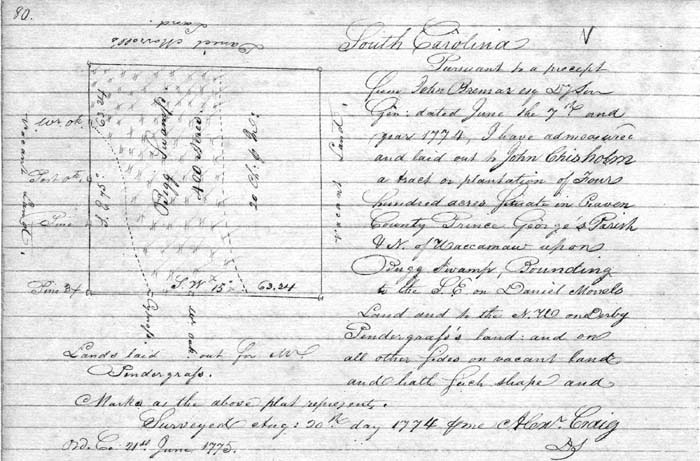 80.
Daniel Morrell's
Land.
South Carolina
V
Pursuant to a precept
from John Bremar esq Dy Sur
Gen: dated June the 7th and
year 1774, I have admeasured
and laid out to John Chisholm
a tract or plantation of Four
hundred acres situate in Craven
County Prince George's Parish
N. of Waccamaw upon
Bugg Swamp, Bounding
to the S.E on Daniel Morrels
Land and to the N.W on Derby
Pendergrass's land: and on
all other sides on vacant land
and hath such shape and
Marks as the above plat represents.
Surveyed Aug: 20th day 1774 pme Alexr. Craig
DS
Ord. Co. 21st June 1775.
Wr ok.
Post ok.
Pine
Pine 3x
vacant Land.
63.24
Bugg Swamp.
400 Acres
20 Ch. p In.
vacant Land.
S.W 15°
63.24
Cypress.
wr oak
Lands laid out for Mr
Pendergrass.